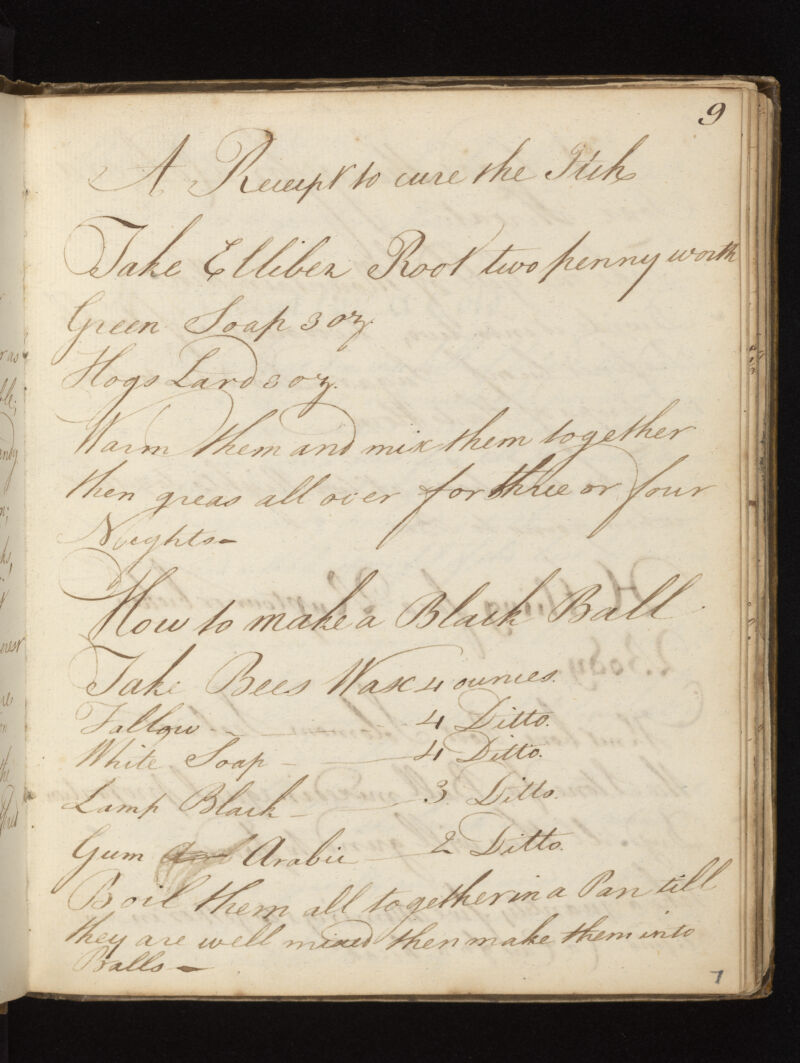 9
A Receipt to cure the Itch
Take Elliber Root two penny worth
Green Soap 3 oz.
Hogs Lard 3 oz.
Warm them and mix them together
then greas all over for three or four
Neights—
How to make a Black Ball
Take Bees Wax 4 ounces.
Tallow — 4 Ditto.
White Soap — 4 Ditto.
Lamp Black — 3 Ditto.
Gum Arabic — 2 Ditto.
Boil them all together in a Pan till
they are well mixed then make them into
Balls—
7